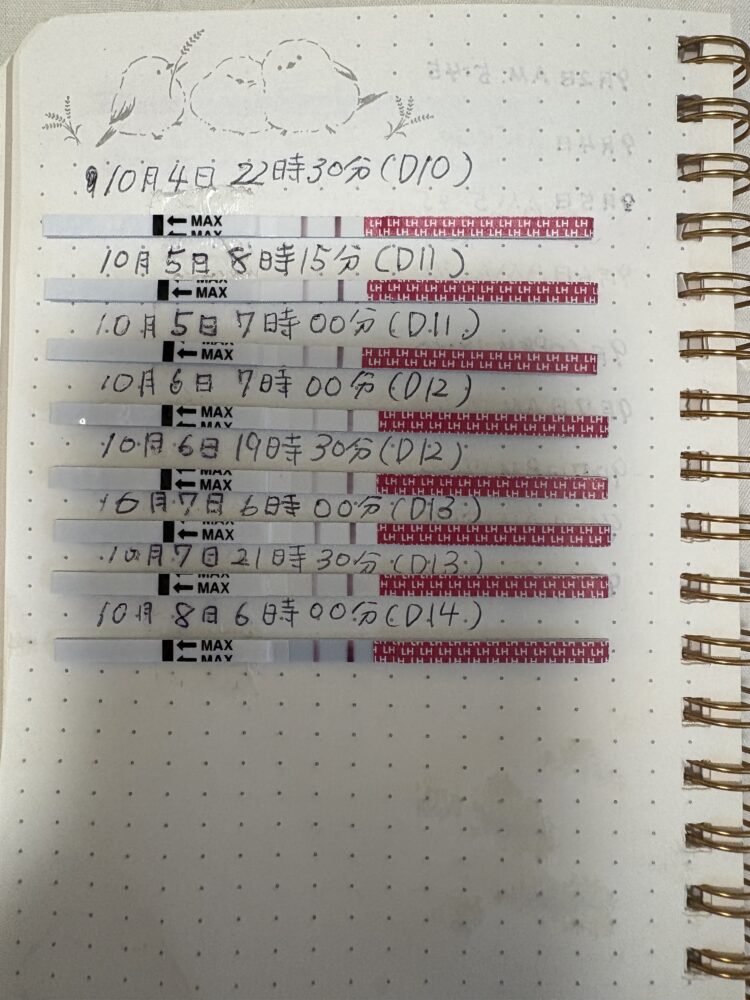 10月4日 22時30分(D10)
← MAX LH LH LH LH LH LH LH LH LH LH LH
10月5日 8時15分(D11)
← MAX LH LH LH LH LH LH LH LH LH LH LH
10月5日 7時00分(D11)
← MAX LH LH LH LH LH LH LH LH LH LH LH
10月6日 7時00分(D12)
← MAX LH LH LH LH LH LH LH LH LH LH LH
10月6日 19時30分(D12)
← MAX LH LH LH LH LH LH LH LH LH LH LH
10月7日 6時00分(D13)
← MAX LH LH LH LH LH LH LH LH LH LH LH
10月7日 21時30分(D13)
← MAX LH LH LH LH LH LH LH LH LH LH LH
10月8日 6時00分(D14)
← MAX LH LH LH LH LH LH LH LH LH LH LH